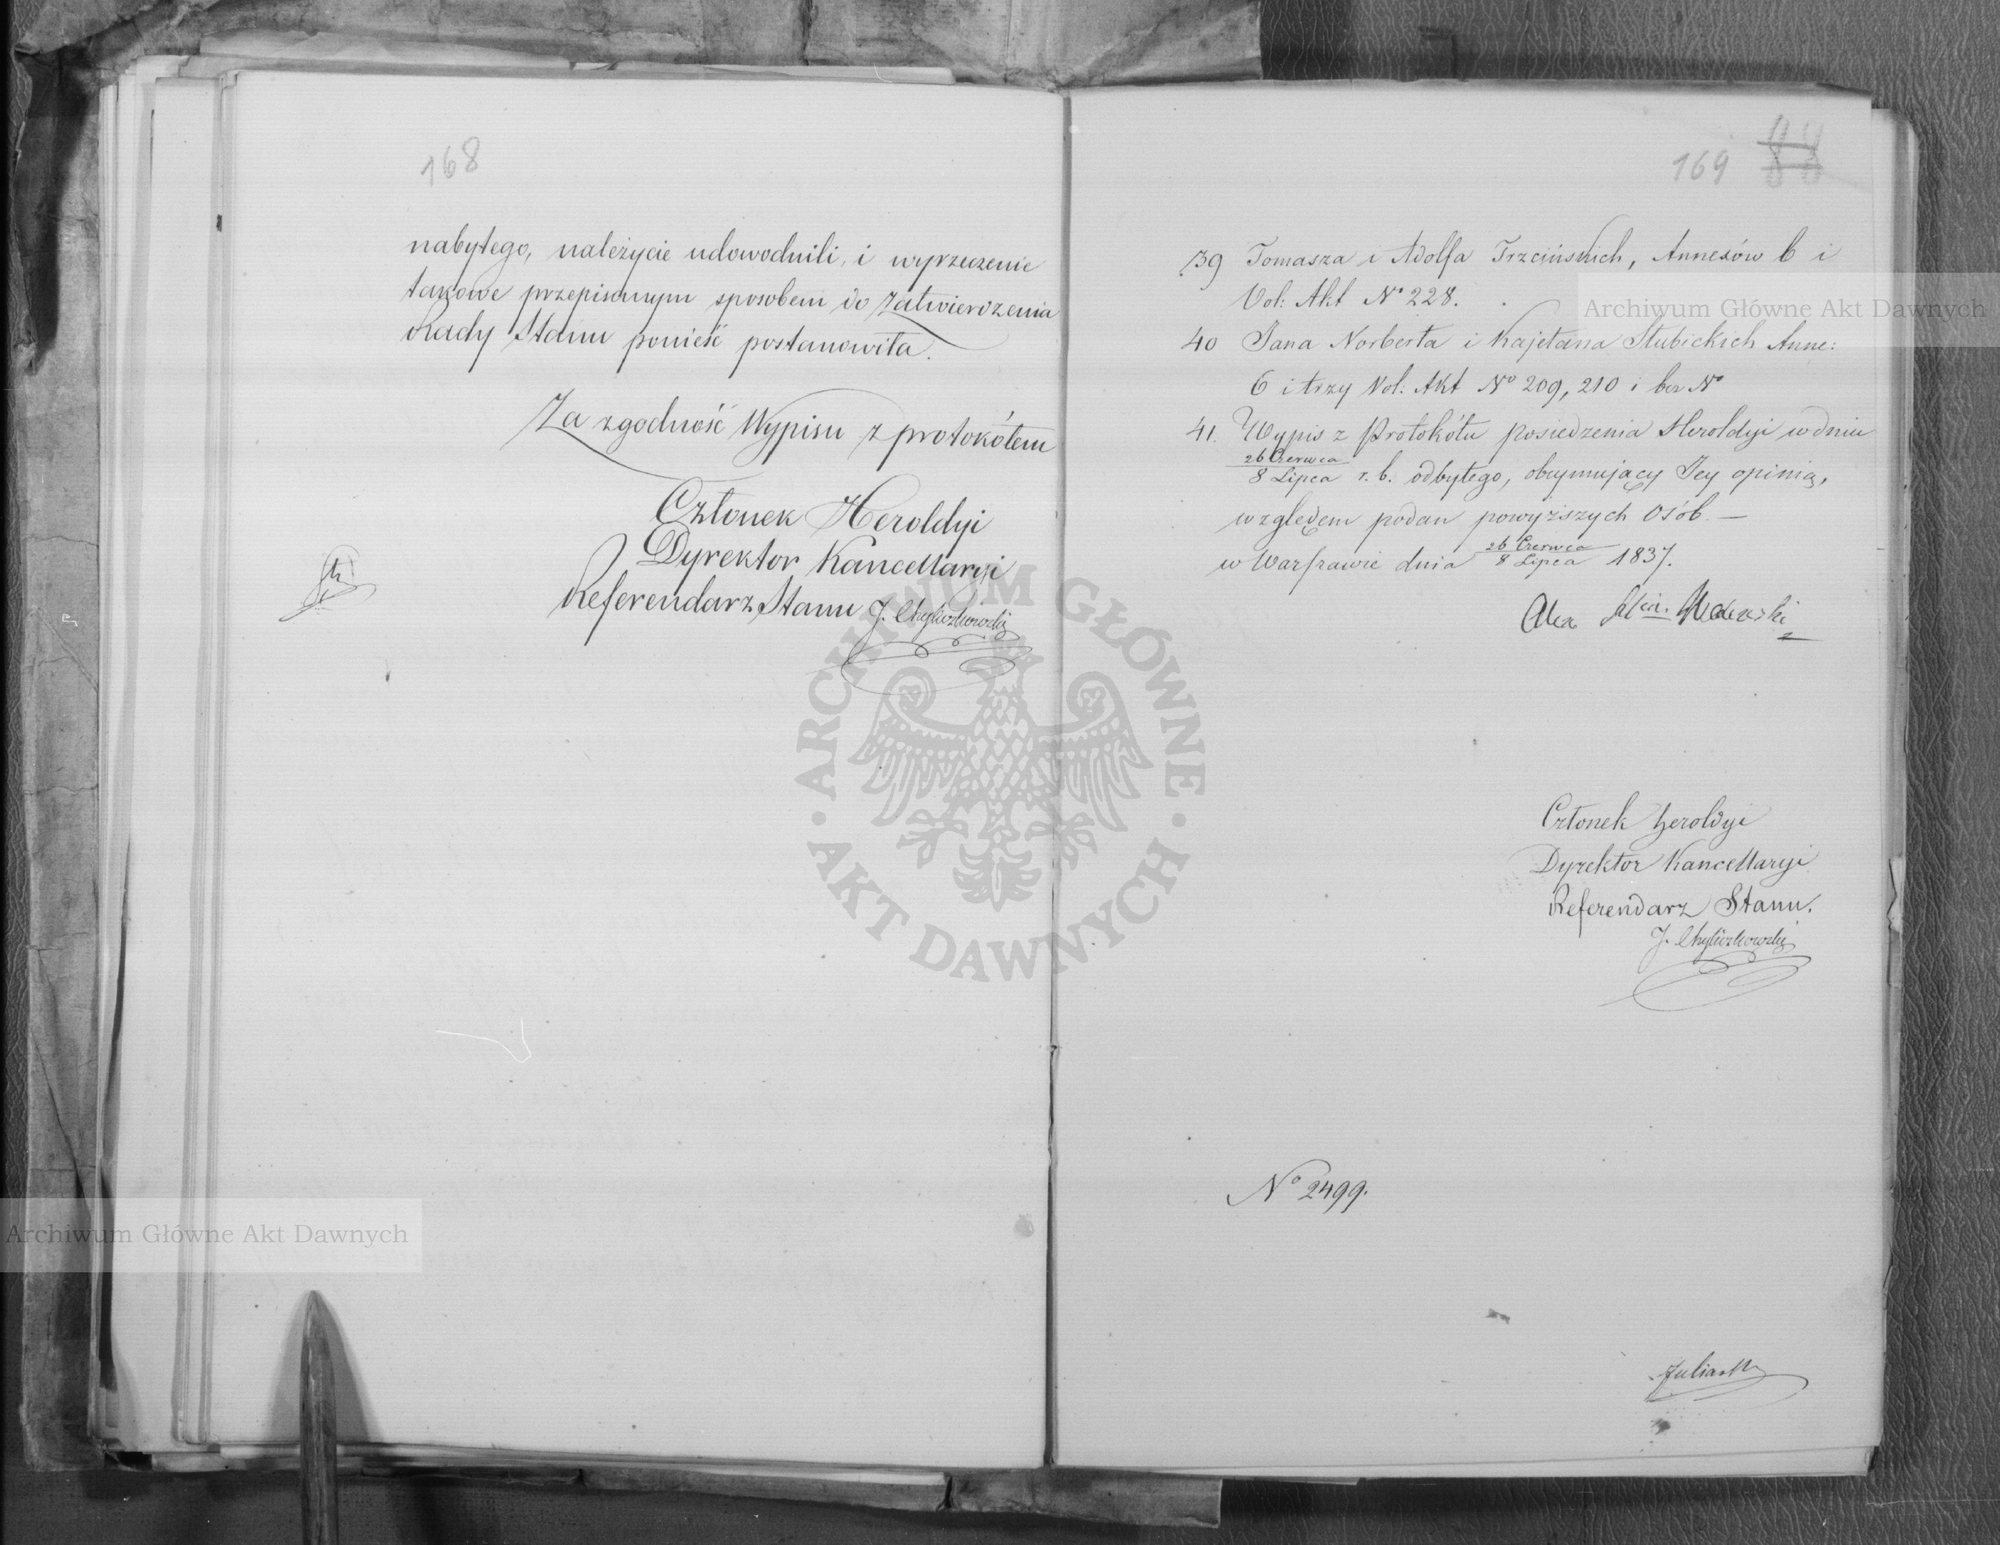 168
nabytego, należycie udowodnili, i wyrzeczenie
takowe przepisanym sposobem do zatwierdzenia
Rady Stanu ponieść postanowiła.
Za zgodność Wypisu z protokółem
Członek Heroldyi
Dyrektor Kancellaryi
Referendarz Stanu J. Chyliczkowski
169
39 Tomasza i Adolfa Trzcińskich, Annexów 6 i
Vol: Akt No 228.
40 Jana Norberta i Kajetana Słubickich Anne:
6 i trzy Vol: Akt No 209, 210 i bez No
41. Wypis z Protokółu posiedzenia Heroldyi w dniu
26 Czerwca
8 Lipca r. b. odbytego, obejmujący Jey opinią,
względem podań powyższych Osób. —
w Warszawie dnia 26 Czerwca / 8 Lipca 1837.
Alex
Członek Heroldyi
Dyrektor Kancellaryi
Referendarz Stanu.
J. Chyliczkowski
No 2499.
Archiwum Główne Akt Dawnych
Archiwum Główne Akt Dawnych
ARCHIWUM GŁÓWNE AKT DAWNYCH